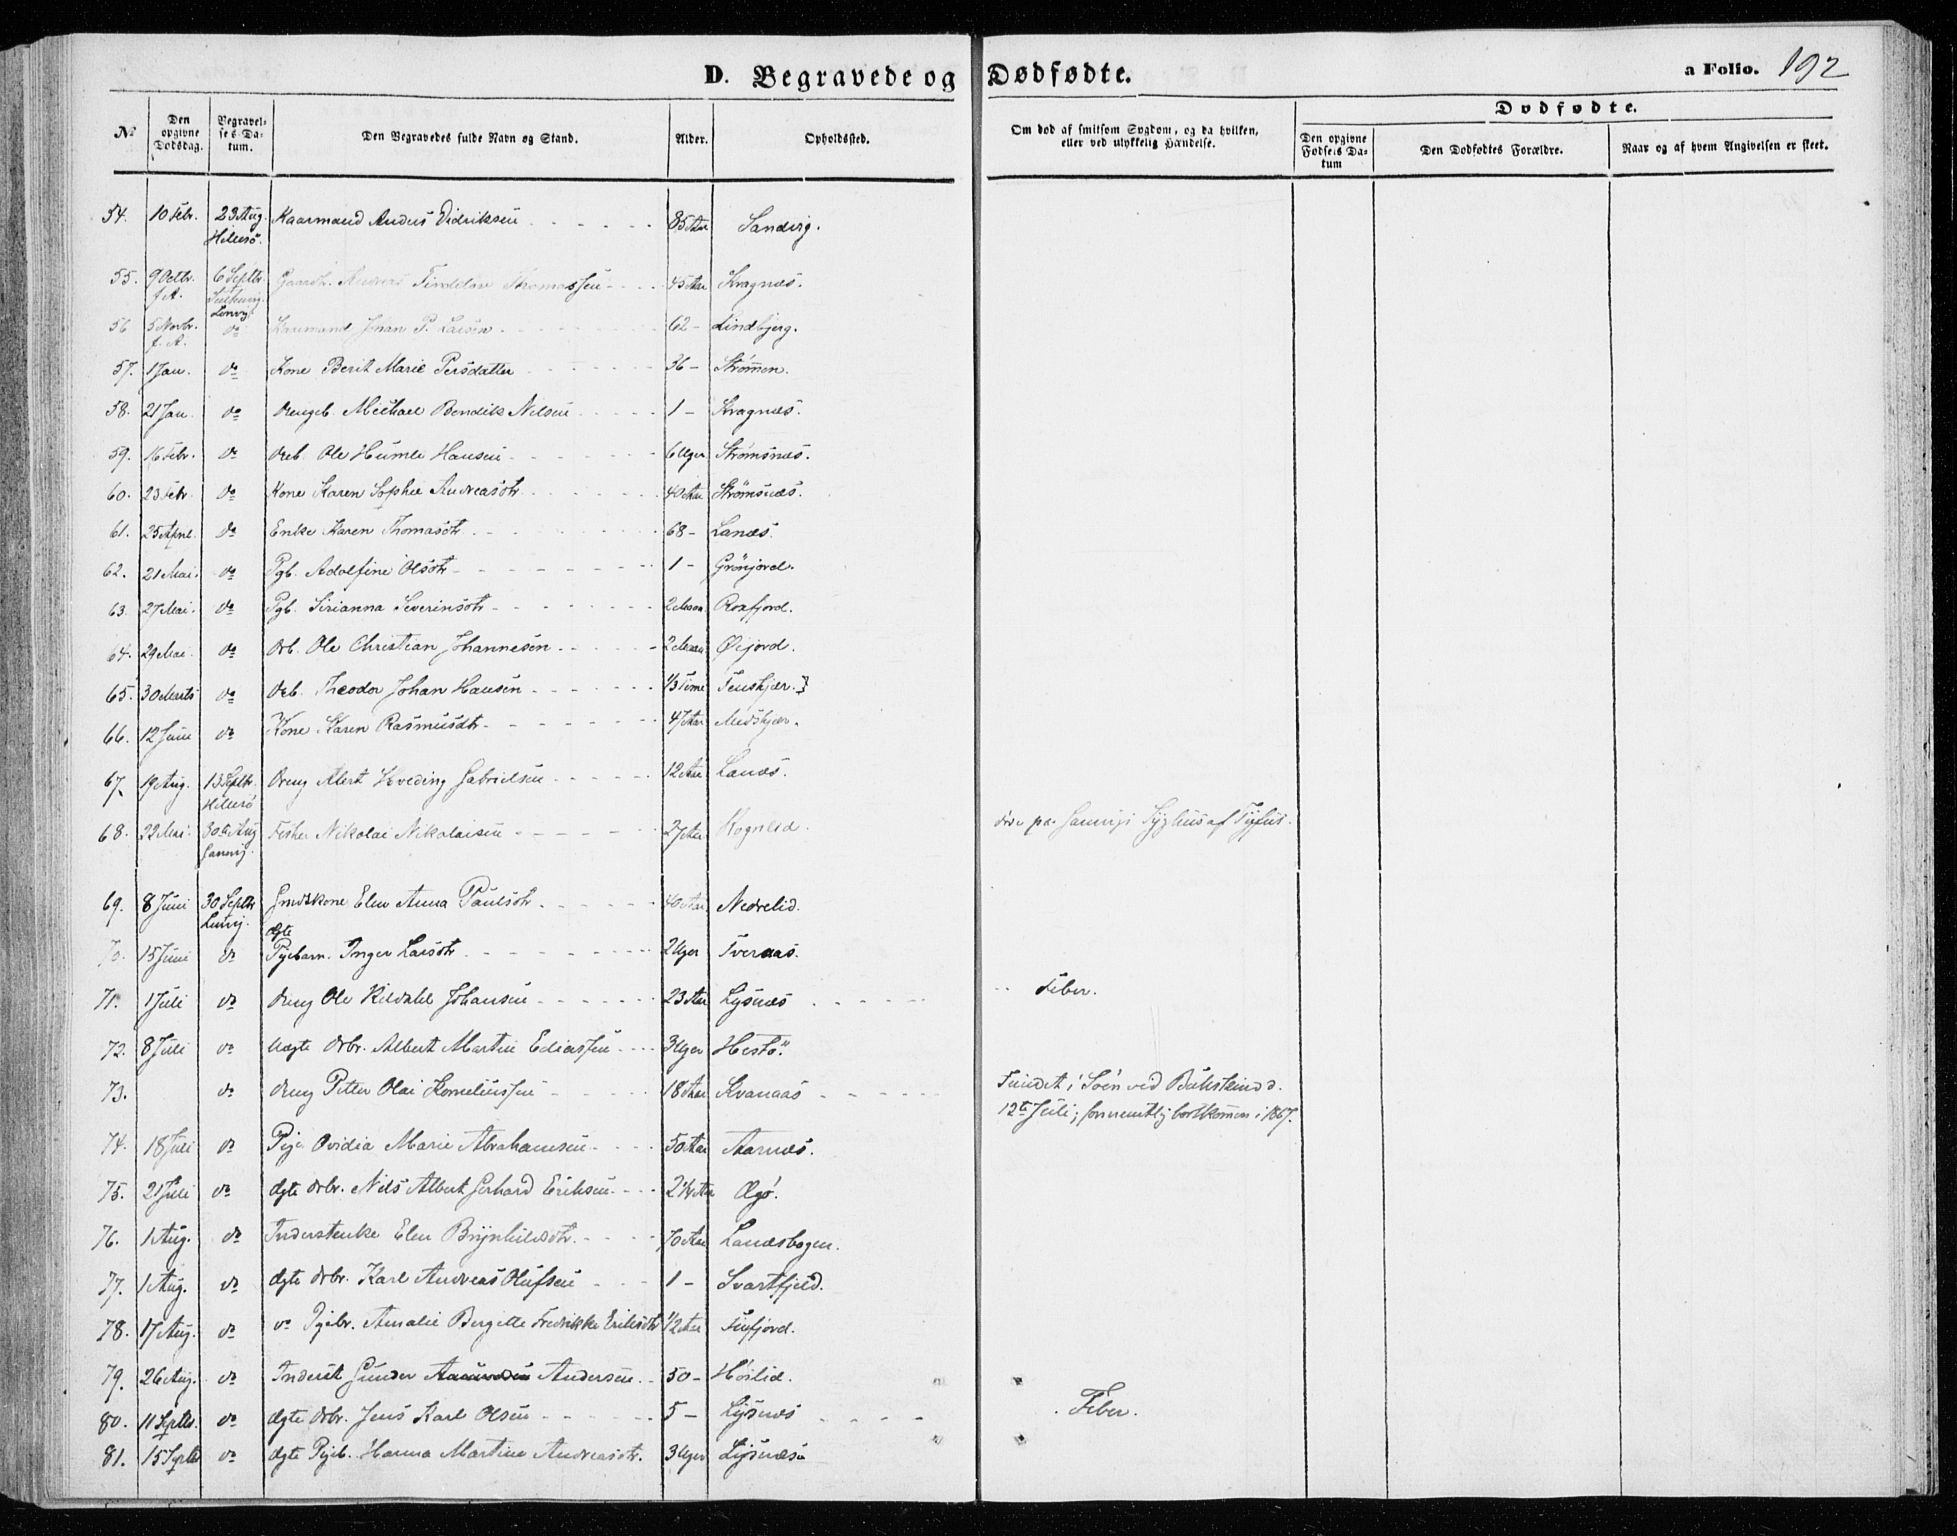 D. Begravede og Dødfødte.
a Folio. 192
No
Den opgivne Dødsdag.
Begravelses Datum.
Den Begravedes fulde Navn og Stand.
Alder.
Opholdssted.
Om død af smitsom Sygdom, og da hvilken, eller ved ulykkelig Hændelse.
Dødfødte.
Den opgivne Fødsels Datum
Den Dødfødtes Forældre.
Naar og af hvem Angivelsen er skeet.
54. 10 Febr. 23 Aug. Kaarmand Anders Didriksen 85 Aar Sandvig.
Hillesö.
55. 9 Octbr. 6 Septbr. Thomassen 45 Aar Kragnæs.
f. A. Lenvg.
56 5 Novbr. do Kaarmand Johan P. Larsen 62 - Lindbjerg.
f. A.
57. 1 Jan. do Kone Berit Marie Persdatter 36 - Strømmen.
58. 21 Jan. do Drengeb. Michael Bendik Nilsen 1 - Kragnæs.
59. 16 Febr. do Dreb. Ole Humle Hansen 6 Uger Strømsnæs.
60. 23 Febr. do Kone Karen Sophie Andreasdtr 40 Aar Strømsnæs.
61. 25 April. do Enke Karen Thomasdtr 68 - Lanæs.
62. 21 Mai. do Pgb. Adolfine Olsdtr 1 - Grönjord.
63. 27 Mai. do Pgb. Sirianna Severinsdtr 2 Maan. Roxfjord.
64. 29 Mai. do Drb. Ole Christian Johannesen 2 Maan Øijord.
65. 30 Marts do Drb. Theodor Johan Hansen 1/3 Time Finskjær. }
66. 12 Juni do Kone Karen Rasmusdtr 47 Aar
67. 19 Aug. 13 Septbr. Dreng Albert Hveding Gabrielsen 12 Aar Lanæs.
Hillesö
68. 22 Mai. 30te Aug Fisker Nikolai Nikolaisen 27 Aar Rognlid. døde paa Sygehus af Tyfus.
69. 8 Juni 30 Septbr Gmdskone Elen Anna Paulsdtr 40 Aar Nedrelid.
Lenvig.
70. 15 Juni do Ægte Pigebarn. Inger Larsdtr 2 Uger Tveraas.
71. 1 Juli do Dreng Ole Kildahl Johansen 23 Aar Lysnæs Feber.
72. 8 Juli do Uægte Drbr. Albert Martin Ediassen 3 Uger Hestö.
73. do Dreng Petter Olai Korneliussen 18 Aar Kvanaas Fundet i Söen ved
12te Juli; formentlig bortkommen i 1867.
74. 18 Juli do Pige Ovidia Marie Abrahamsen 50 Aar Aarnæs.
75. 21 Juli do Ægte Drbr. Nils Albert Gerhard Eriksen Ægö.
76. 1 Aug. do Inderstenke Elen Brynhildsdtr. 70 Aar Lanæsbogen.
77. 1 Aug. do Ægte Drbr. Karl Andreas Olufsen 1 - Svartfjeld.
78. 17 Aug. do do Pigebr. Amalie Bergitte Fredrikke Eriksdtr 1/2 Aar Finfjord.
79. 26 Aug. do Inderst Gunder Andersen 50 - Höilid.
80. 11 Septbr. do Ægte Drbr. Jens Karl Olsen 5 - Lysnæs Feber.
81. 15 Septbr do Ægte Pigeb. Hanna Martine Andreasdtr. 3 Uger Lysnæs